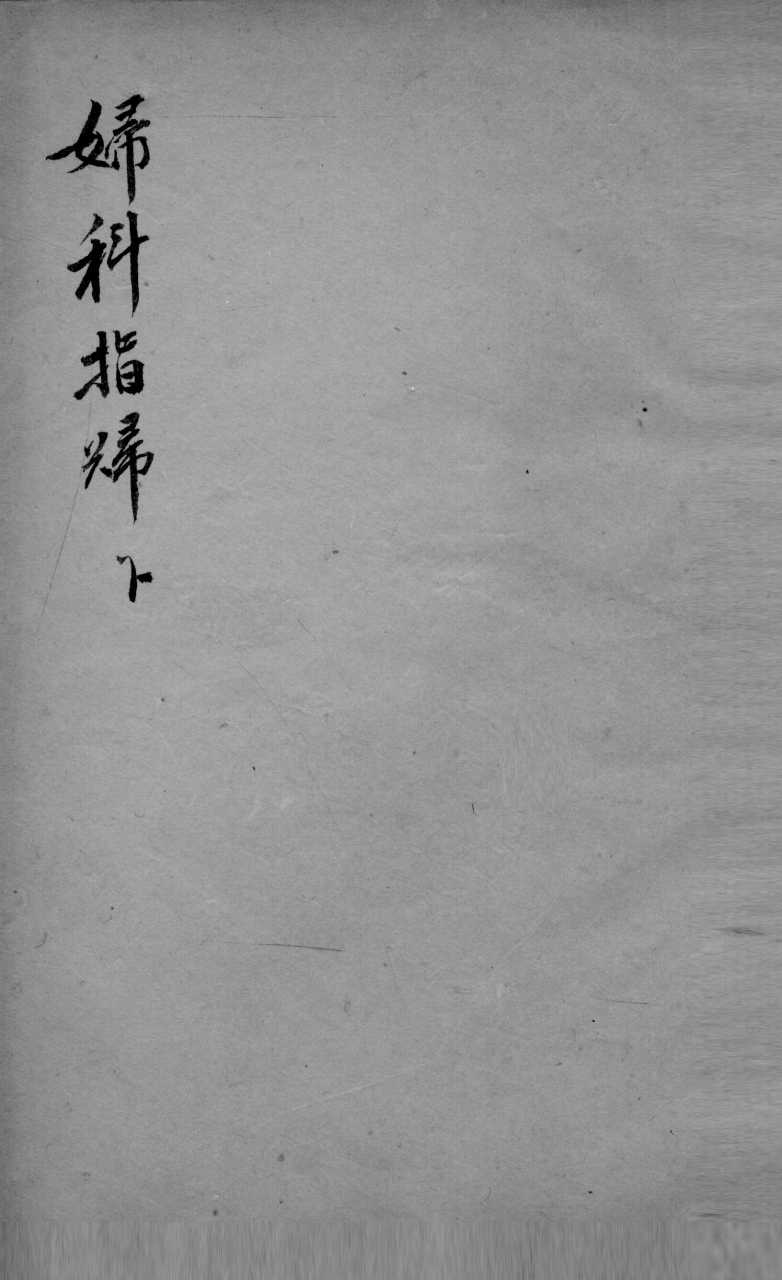 婦科指歸 下